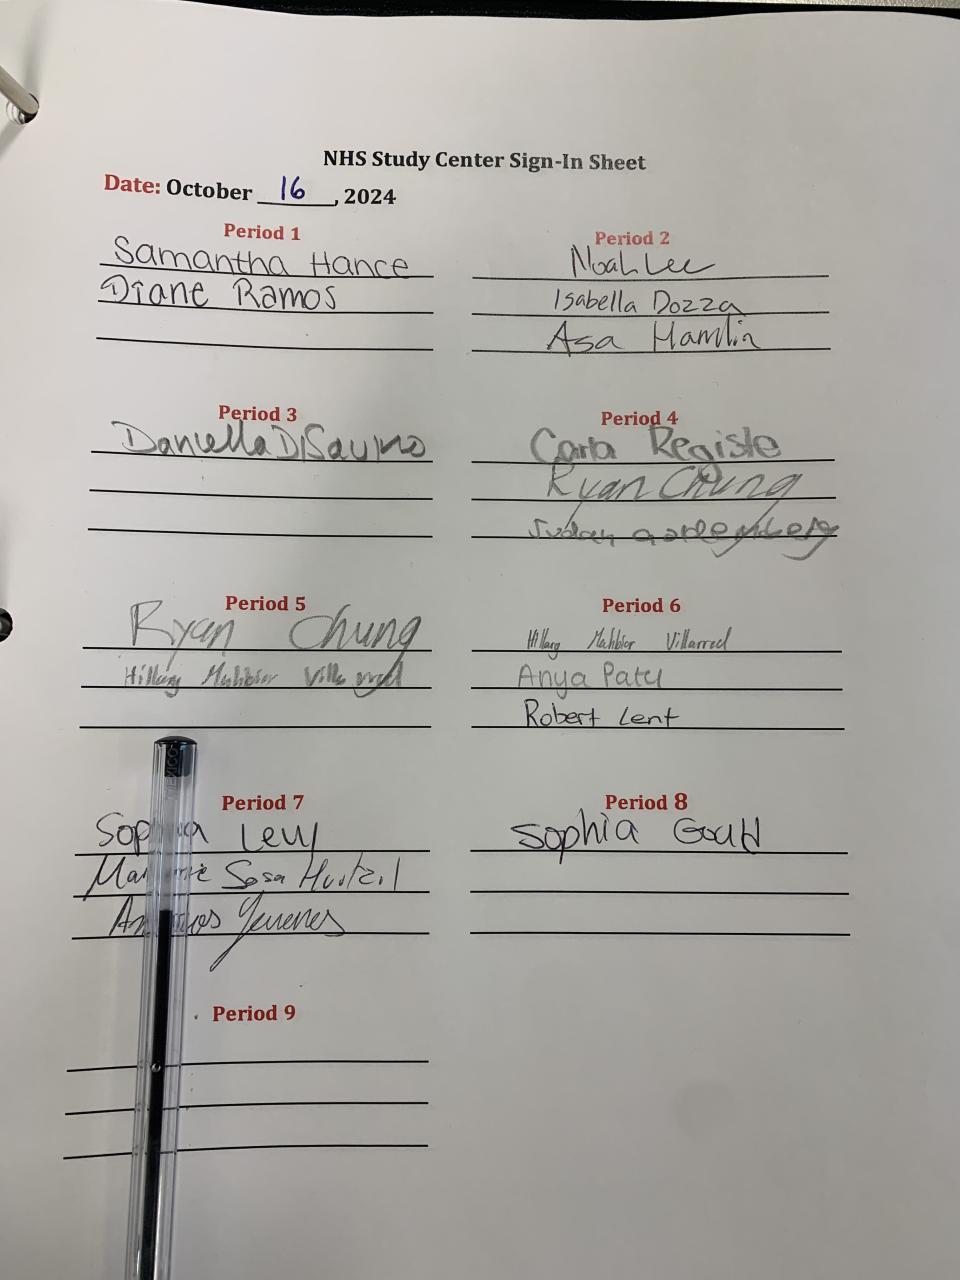 NHS Study Center Sign-In Sheet
Date: October 16, 2024
Period 1
Samantha Hance
Diane Ramos
Period 2
Noah Lee
Isabella Dozza
Asa Hamlin
Period 3
Daniella DiSavino
Period 4
Carla Registe
Ryan Chung
Period 5
Ryan Chung
Hillary Mahbior
Period 6
Hillary Mahbior Villarreal
Anya Patel
Robert Lent
Period 7
Sophia Levy
Sosa
Period 8
Sophia Gould
Period 9
MEXICO